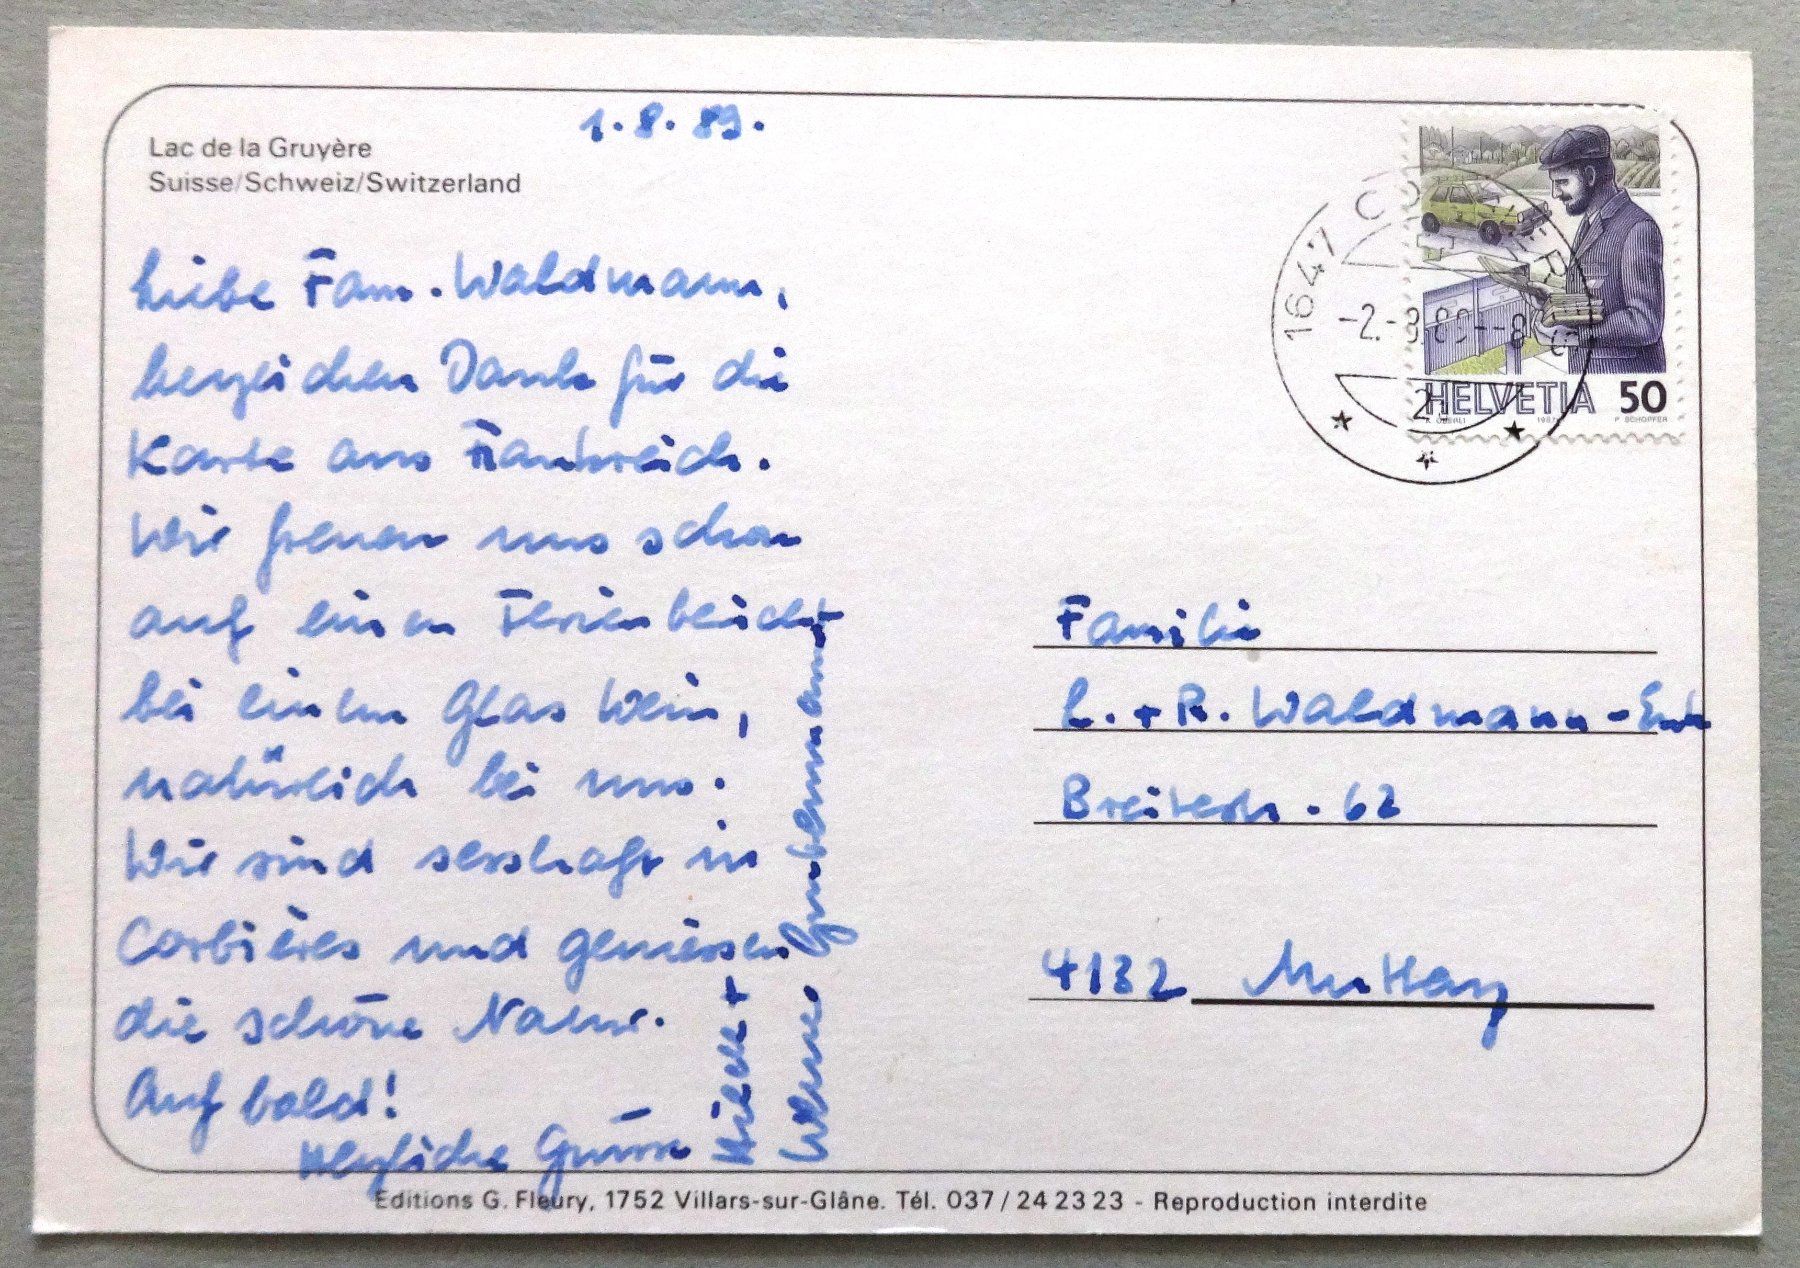 Lac de la Gruyère
Suisse/Schweiz/Switzerland
1.8.89.
Liebe Fam. Waldmann,
herzlichen Dank für die
Karte aus Frankreich.
Wir freuen uns schon
auf einen Ferienbericht
bei einem Glas Wein,
natürlich bei uns.
Wir sind sesshaft in
Corbières und geniessen
die schöne Natur.
Auf bald!
Herzliche Grüsse
Hilde +
Werner
1647
-2.-8.89--8
HELVETIA 50
Familie
L. + R. Waldmann-
Breitestr. 62
4132 Muttenz
Editions G. Fleury, 1752 Villars-sur-Glâne. Tél. 037/24 23 23 - Reproduction interdite